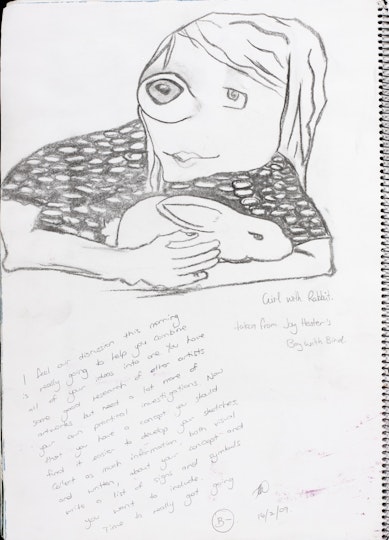 Girl with Rabbit.
taken from Jay Hester's
Boy with Bird
I feel our discussion this morning
is really going to help you combine
all of your ideas into one. You have
some good research of other artists
artworks but need a lot more of
your own practical investigations. Now
that you have a concept you should
find it easier to develop your sketches.
Collect as much information, both visual
and written, about your concept and
write a list of signs and symbols
you want to include.
Time to really get going
B-
16/2/09.